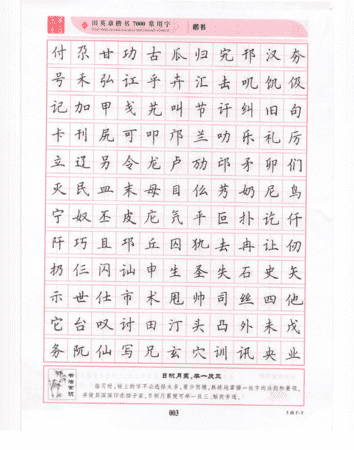 田英章楷书7000常用字
楷书
付尕甘功古瓜归究邗汉夯
号禾弘讧乎卉汇去叽饥伋
记加甲戋艽叫节讦纠旧句
卡刊尻可叩邝兰叻乐礼厉
立辽另令龙卢劢邙矛卯们
灭民皿末母目仫艿奶尼鸟
宁奴丕皮庀氕平叵扑讫仟
阡巧且邛丘囚犰去冉让仞
扔仨闪讪申生圣失石史矢
示世仕市术甩帅司丝四他
它台叹讨田汀头凸外未戊
务阢仙写兄玄穴训讯央业
日积月累，举一反三
003